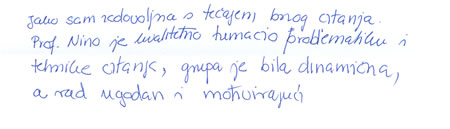 Jako sam zadovoljna s tečajem brzog čitanja.
Prof. Nino je kvalitetno tumačio problematiku i
tehnike čitanja, grupa je bila dinamična,
a rad ugodan i motivirajući